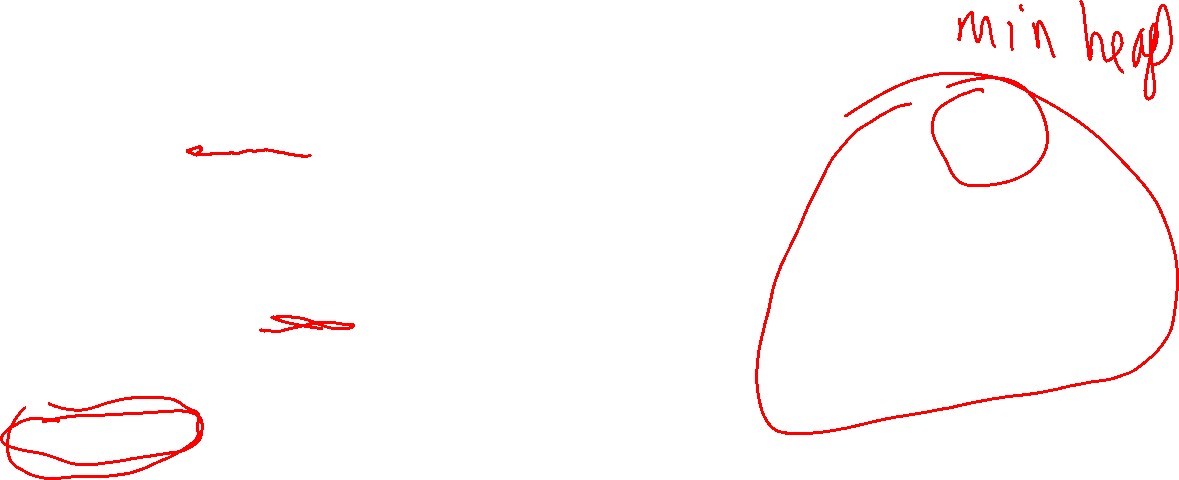 min heap